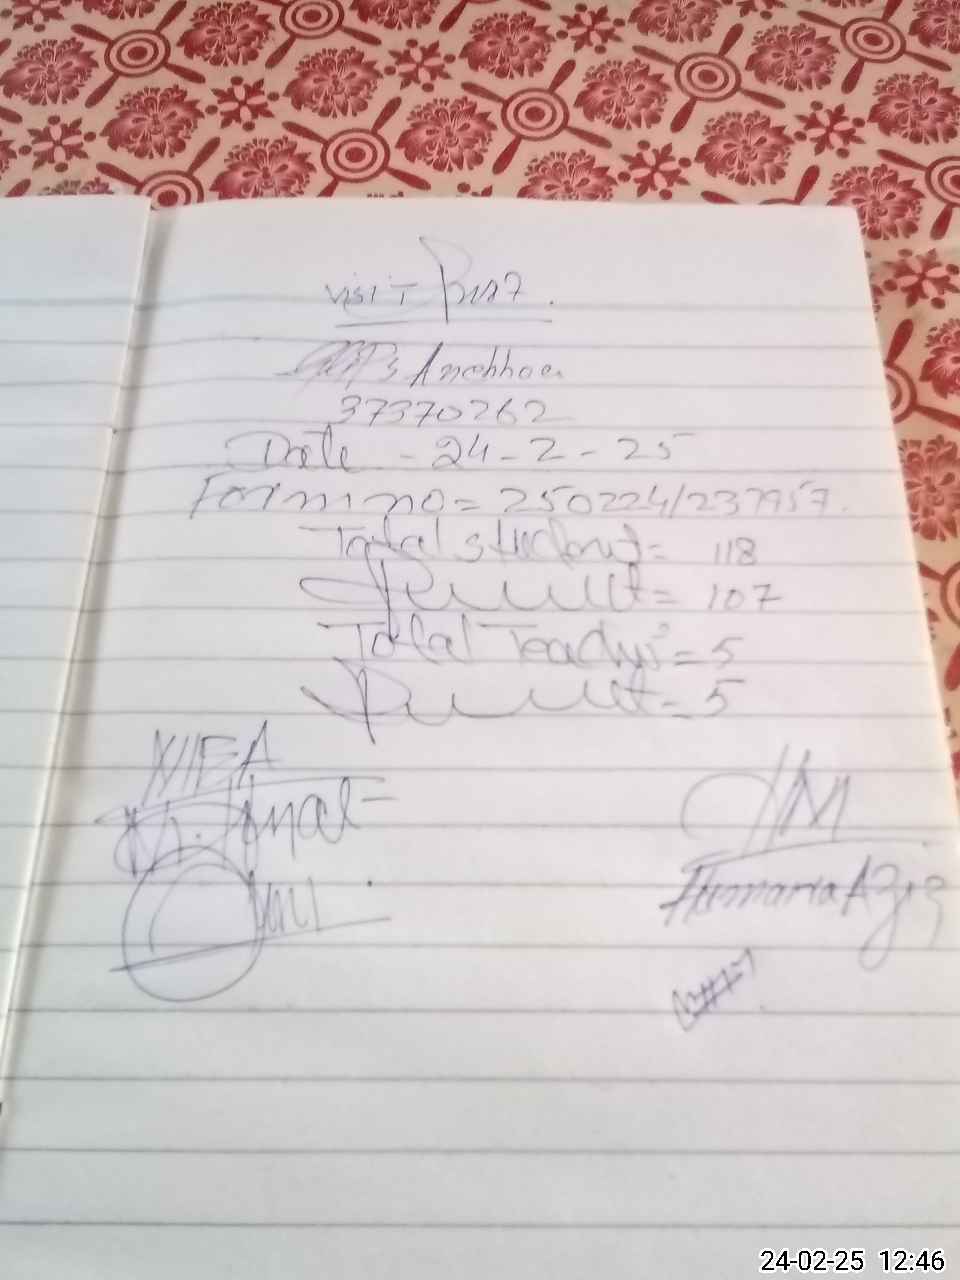 Visit
Anohhoa
37370262
Date - 24-2-25
Form no = 250224/237957.
Total student = 118
Present = 107
Total Teachers = 5
Present = 5
HM
Humaria Aziz
24-02-25 12:46